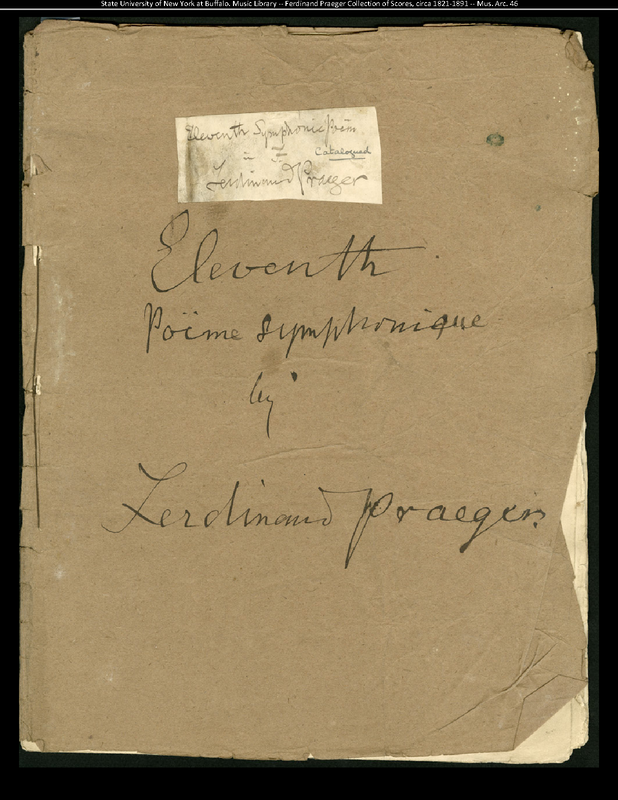 State University of New York at Buffalo. Music Library -- Ferdinand Praeger Collection of Scores, circa 1821-1891 -- Mus. Arc. 46
Eleventh Symphonic Poëm
Catalogued
Ferdinand Praeger
Eleventh
Poëme symphonique
by
Ferdinand Praeger.